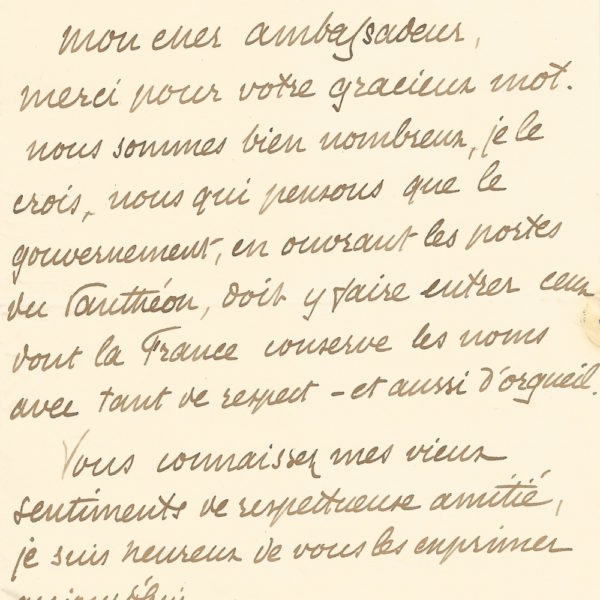 mon cher ambassadeur,
merci pour votre gracieux mot.
nous sommes bien nombreux, je le
crois, nous qui pensons que le
gouvernement, en ouvrant les portes
du Panthéon, doit y faire entrer ceux
dont la France conserve les noms
avec tant de respect – et aussi d'orgueil.
Vous connaissez mes vieux
sentiments de respectueuse amitié,
je suis heureux de vous les exprimer
aujourd'hui